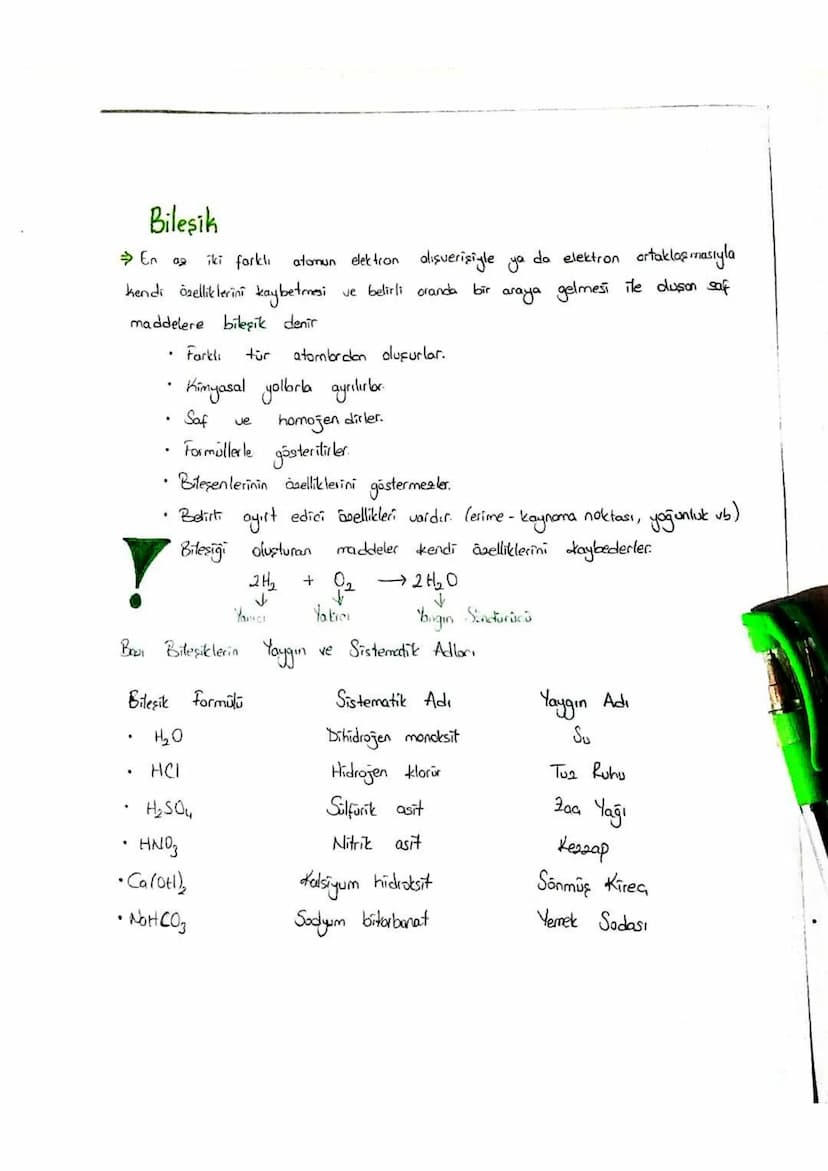 Bileşik
⇒ En az iki farklı atomun elektron alışverişiyle ya da elektron ortaklaşmasıyla
kendi özelliklerini kaybetmesi ve belirli oranda bir araya gelmesi ile oluşan saf
maddelere bileşik denir
• Farklı tür atomlardan oluşurlar.
• Kimyasal yollarla ayrılırlar.
• Saf ve homojen dirler.
• Formüllerle gösterilirler.
• Bileşenlerinin özelliklerini göstermezler.
• Belirli ayırt edici özellikleri vardır. (erime - kaynama noktası, yoğunluk vb)
! Bileşiği oluşturan maddeler kendi özelliklerini kaybederler.
2H₂ + O₂ → 2H₂O
↓ ↓ ↓
Yanıcı Yakıcı Yangın Söndürücü
Bazı Bileşiklerin Yaygın ve Sistematik Adları
Bileşik Formülü Sistematik Adı Yaygın Adı
• H₂O Dihidrojen monoksit Su
• HCl Hidrojen klorür Tuz Ruhu
• H₂SO₄ Sülfürik asit Zaç Yağı
• HNO₃ Nitrik asit Kezzap
• Ca(OH)₂ Kalsiyum hidroksit Sönmüş Kireç
• NaHCO₃ Sodyum bikarbonat Yemek Sodası